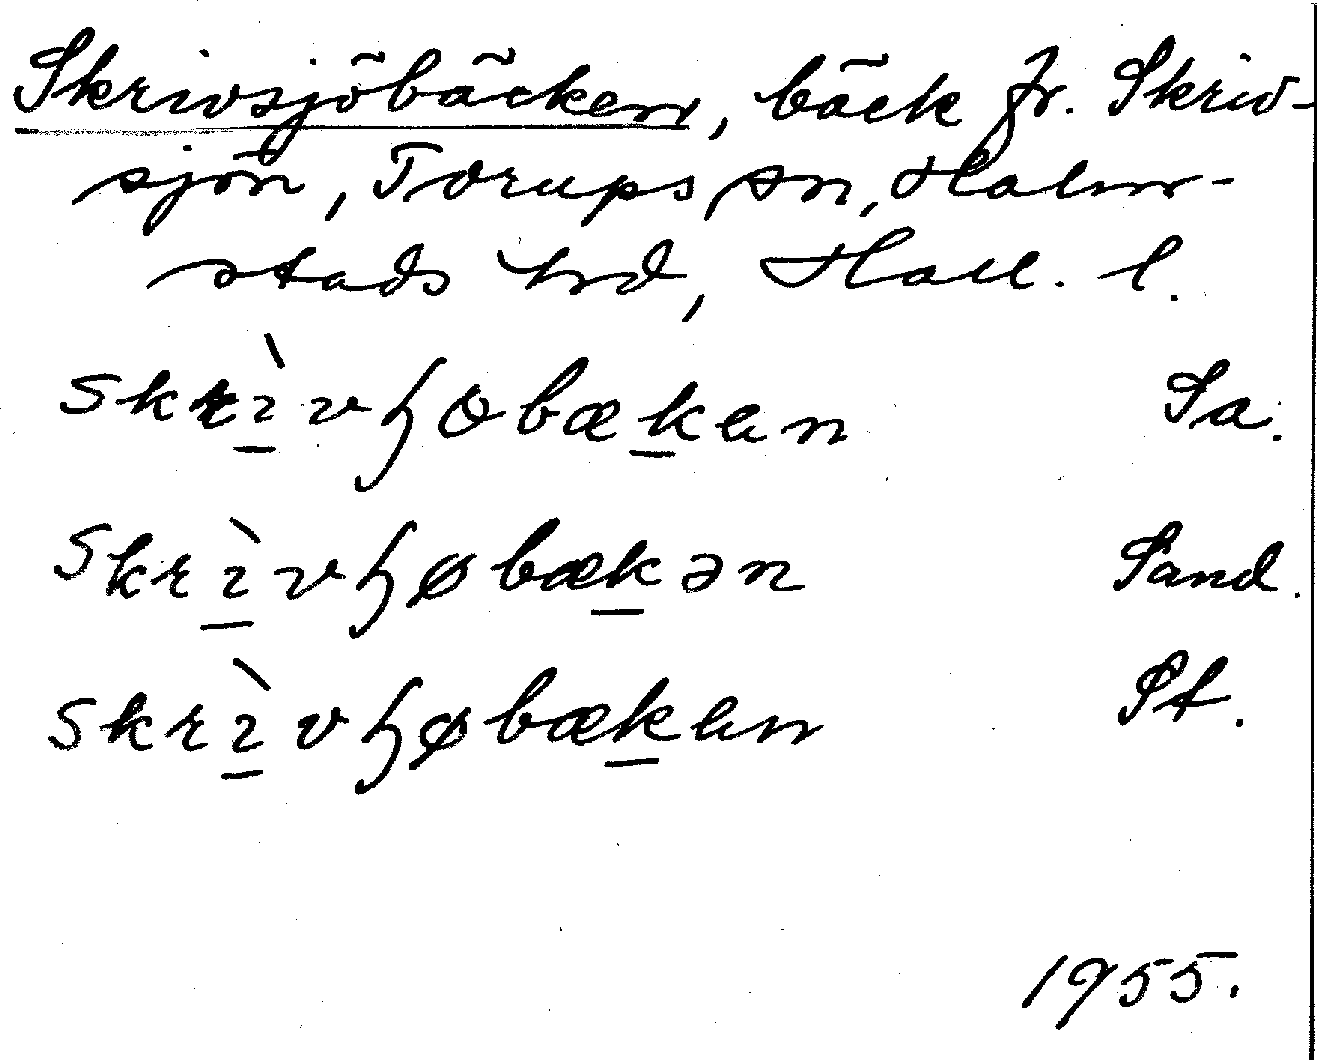 Skrivsjöbäcken, bäck fr. Skriv-
sjön, Torups sn, Halm-
stads hrd, Hall. l.
skrı̀vɧobækɐn Sa.
skrı̀vɧøbækən Sand.
skrı̀vɧøbækɐn St.
1955.